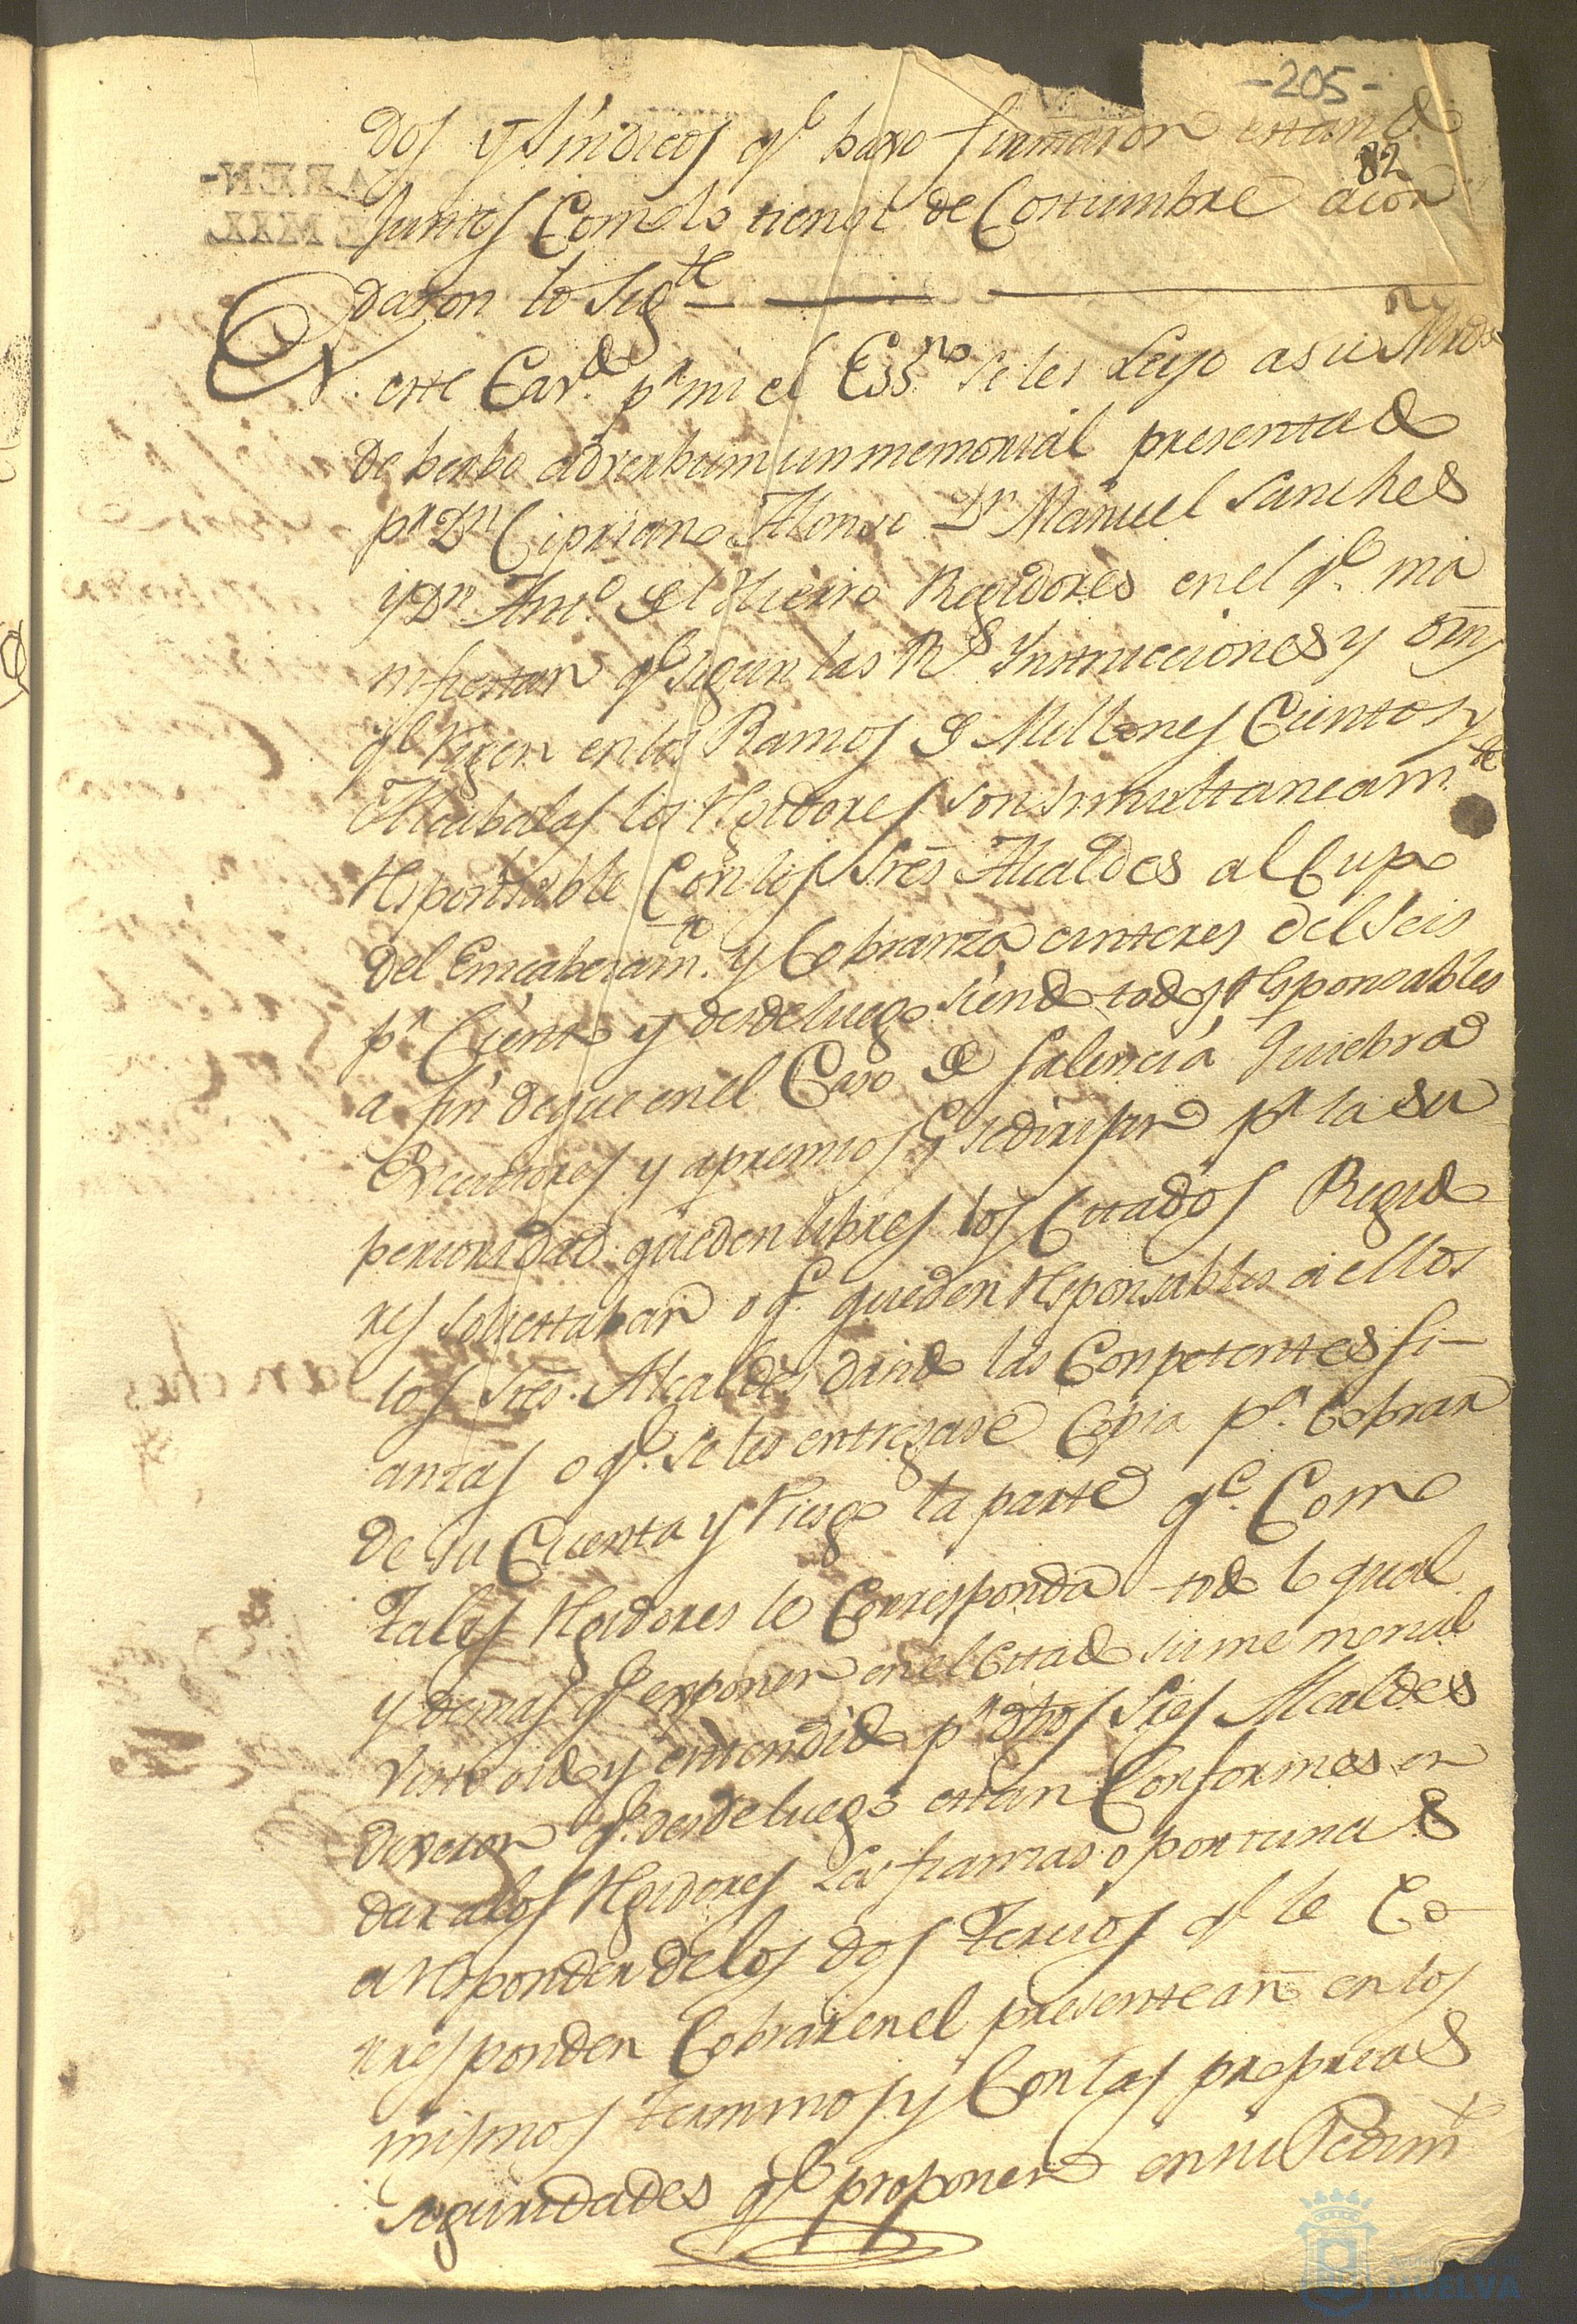 -205-
82
dos y Síndicos qe. baxo firmaron estando
Juntos Como lo tienen de Costumbre acor
daron lo Sigte
En este Cavdo. pr. mi el Essno. se les Leyo a sus Mrds.
de berbo adverbum un memorial presentado
pr. Dn. Cipriano Alonso Dn. Manuel Sanches
y Dn. Anto. del Hierro Regidores en el qe. ma
nifiestan qe. segun las Rs. Ynstrucciones y orns.
qe. rigen en los Ramos de Millones Cientos y
Alcabalas los Rexidores son simultaneamte.
responsable Con los Sres. Alcaldes al Cupo
del Encabezamto. y Cobranza e interes del seis
pr. Ciento y desde luego siendo todos responsables
a fin de que en el Caso de falencia Quiebra
Executores y apremios qe. se dirijan pr. la su
perioridad queden libres los Citados Regido
res solicitaban o qe. queden responsables a ellos
los Sres. Alcaldes dando las Conpetentes fi-
anzas o qe. se les entregase Copia pa. Cobrar
de su Cuenta y Riesgo la parte qe. Como
tales Rexidores le Corresponda todo lo qual
y demas qe. exponen en el Citado su memorial
visto oido y entendido pr. dhos Sres Alcaldes
dixeron qe. desde luego estan Conformes en
dar a los Rexidores las fianzas oportunas
a responder de los dos tercios qe. le Co-
rresponden Cobrar en el presente año en los
mismos terminos y Con las propias
seguridades qe. proponen en su Pedimto.
HUELVA